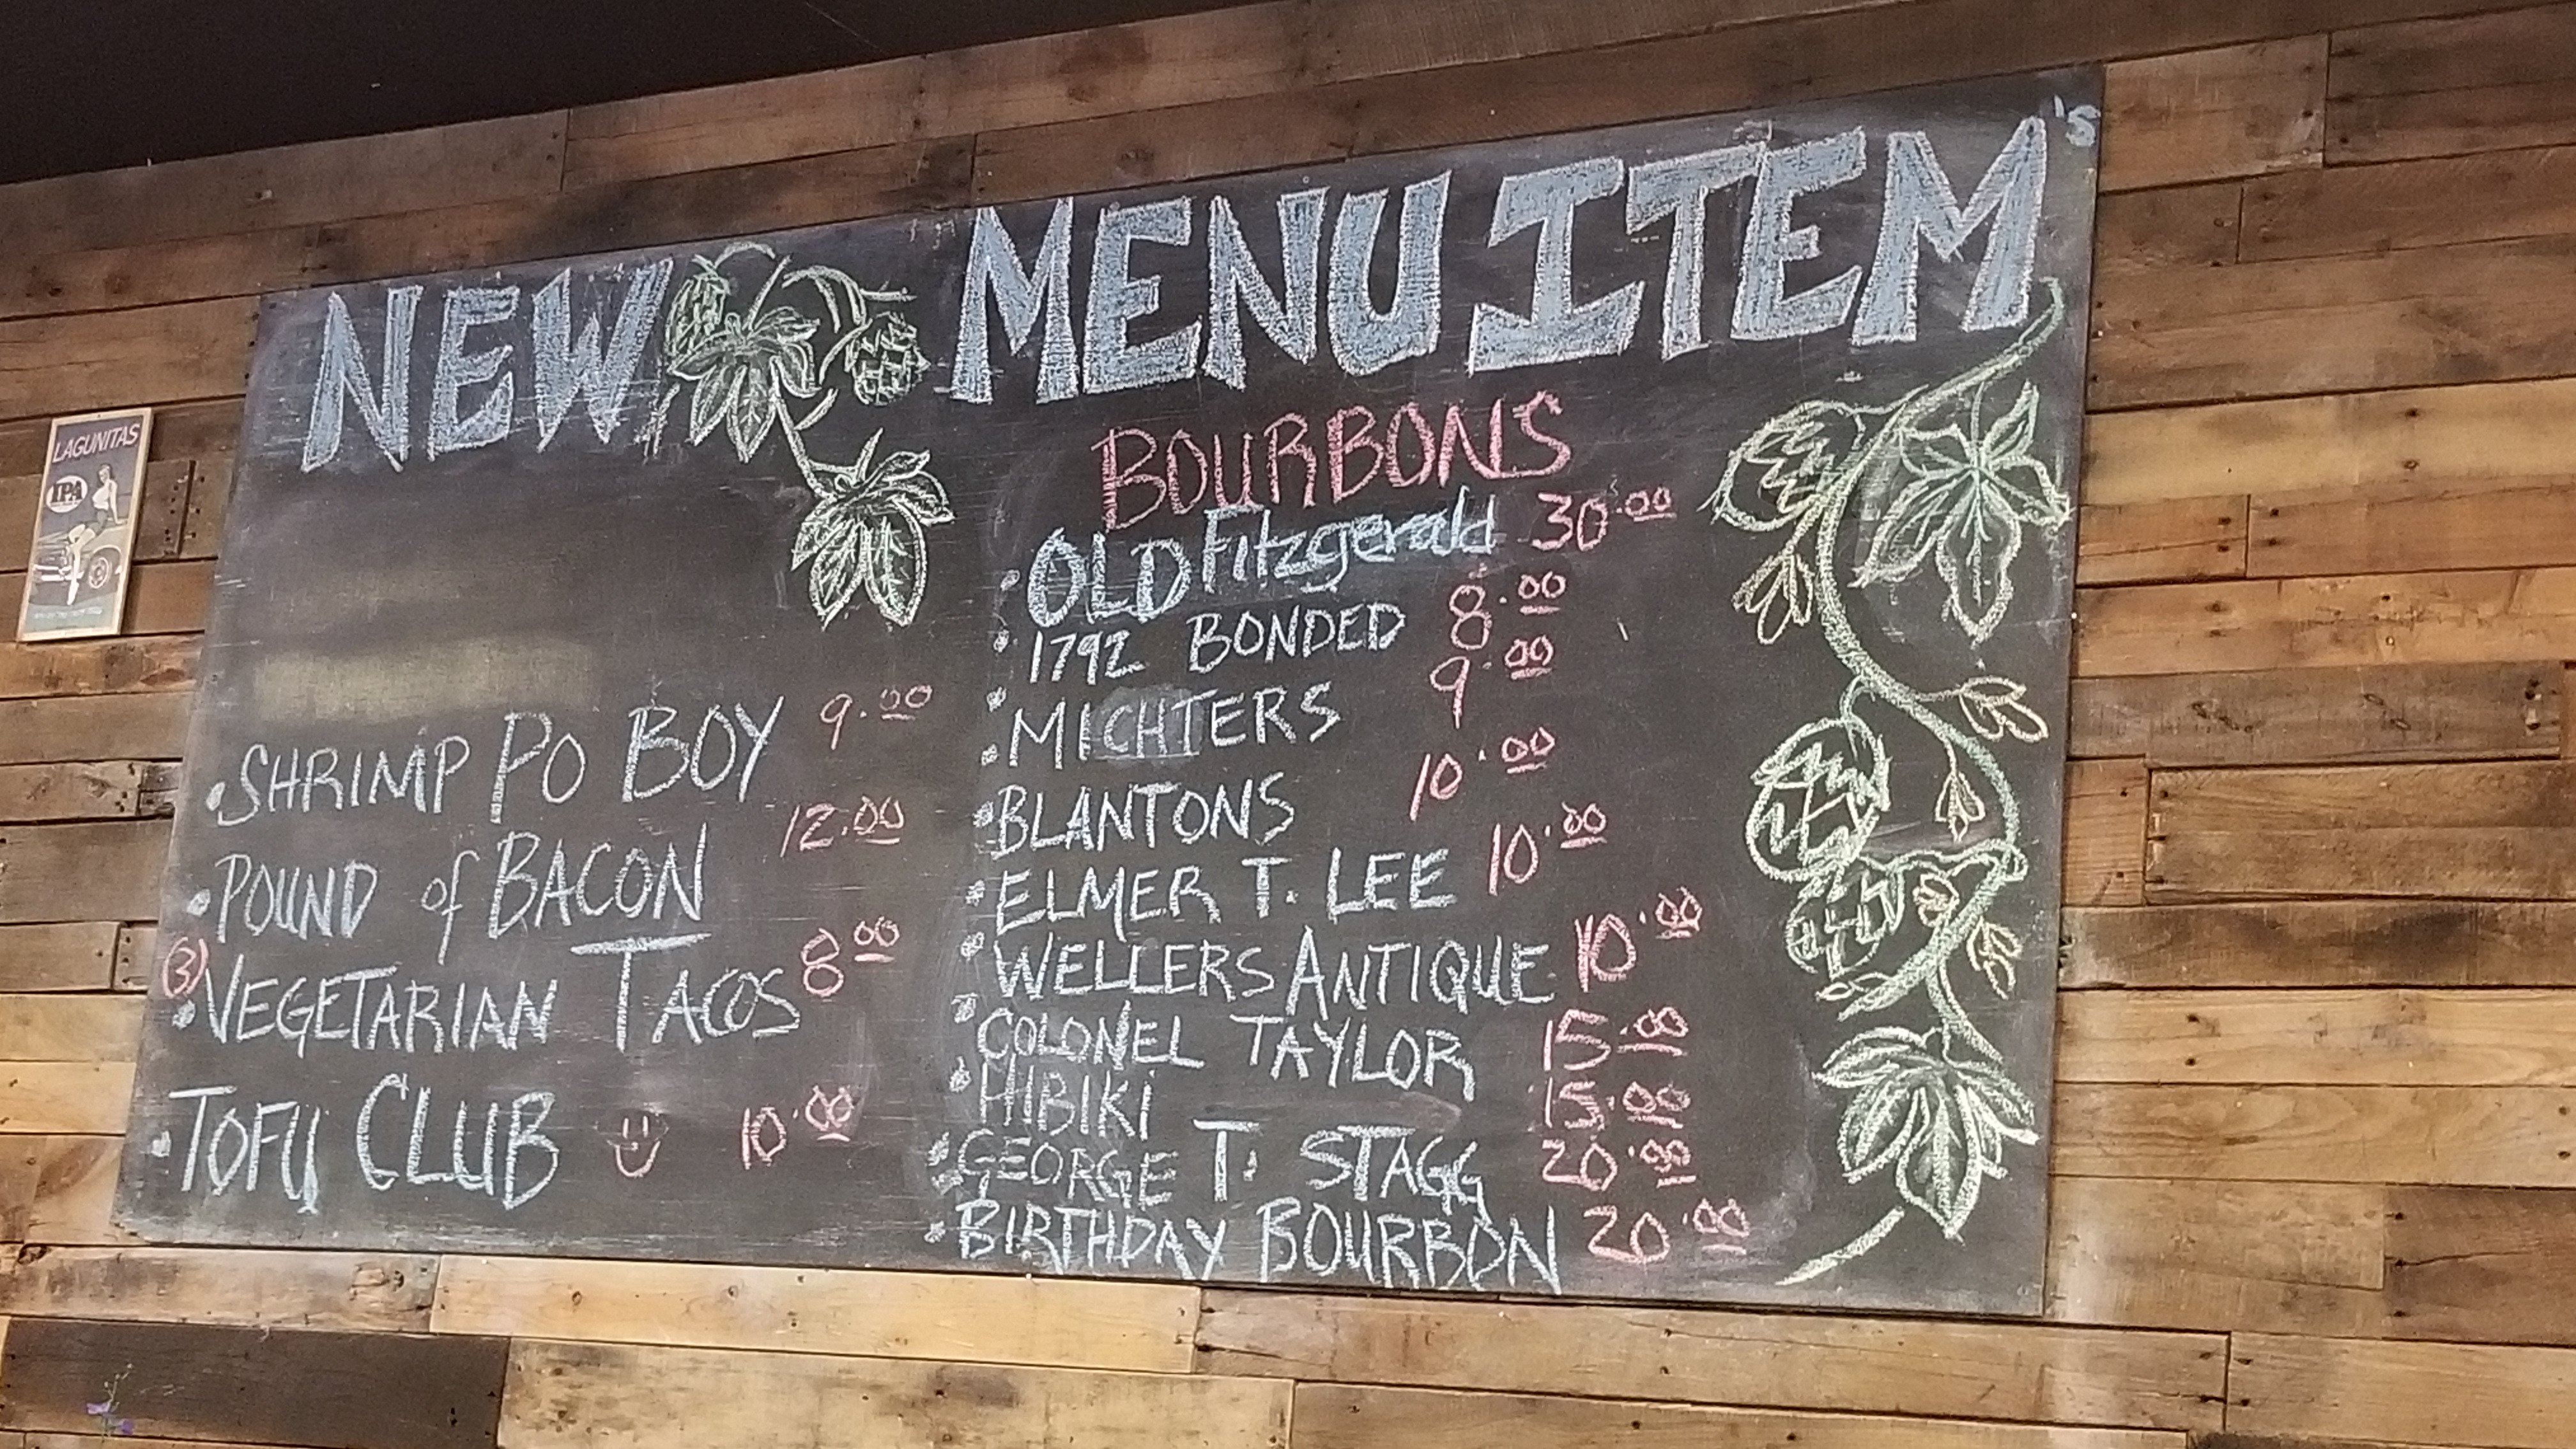 NEW MENU ITEM's
LAGUNITAS
IPA
SHRIMP PO BOY 9.00
POUND of BACON 12.00
(3) VEGETARIAN TACOS 8.00
TOFU CLUB 10.00
BOURBONS
OLD Fitzgerald 30.00
1792 BONDED 8.00
MICHTERS 9.00
BLANTONS 10.00
ELMER T. LEE 10.00
WELLERS ANTIQUE 10.00
COLONEL TAYLOR 15.00
HIBIKI 15.00
GEORGE T. STAGG 20.00
BIRTHDAY BOURBON 20.00